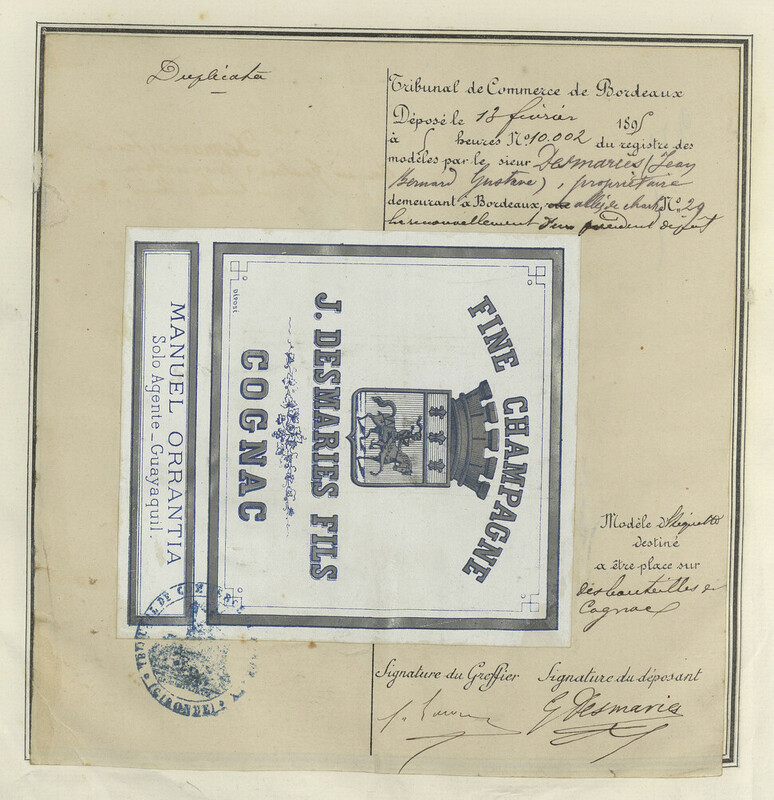 Duplicata
Tribunal de Commerce de Bordeaux
Déposé le 13 février 1895
à 5 heures No 10.002 du registre des
modèles par le sieur Desmariès (Jean
Bernard Gustave), propriétaire
demeurant à Bordeaux, allée de No 29
renouvellement d'un précédent dépôt
FINE CHAMPAGNE
J. DESMARIES FILS
COGNAC
otrosi
MANUEL ORRANTIA
Solo Agente_Guayaquil.
Modèle d'étiquette
destiné
a être place sur
des bouteilles de
Cognac
Signature du Greffier Signature du déposant
G Desmariès
TRIBUNAL DE COMMERCE
(GIRONDE)